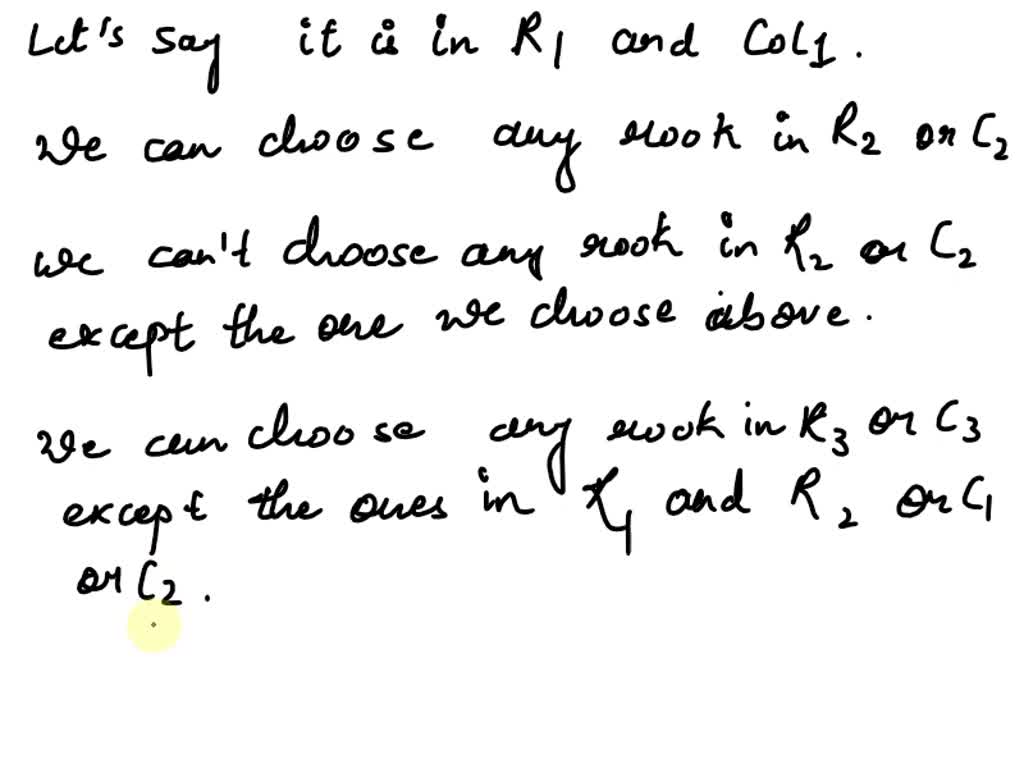 Let's say it is in R1 and Col1.
We can choose any rook in R2 or C2
we can't choose any rook in R2 or C2
except the one we choose above.
We can choose any rook in R3 or C3
except the ones in R1 and R2 or C1
or C2.